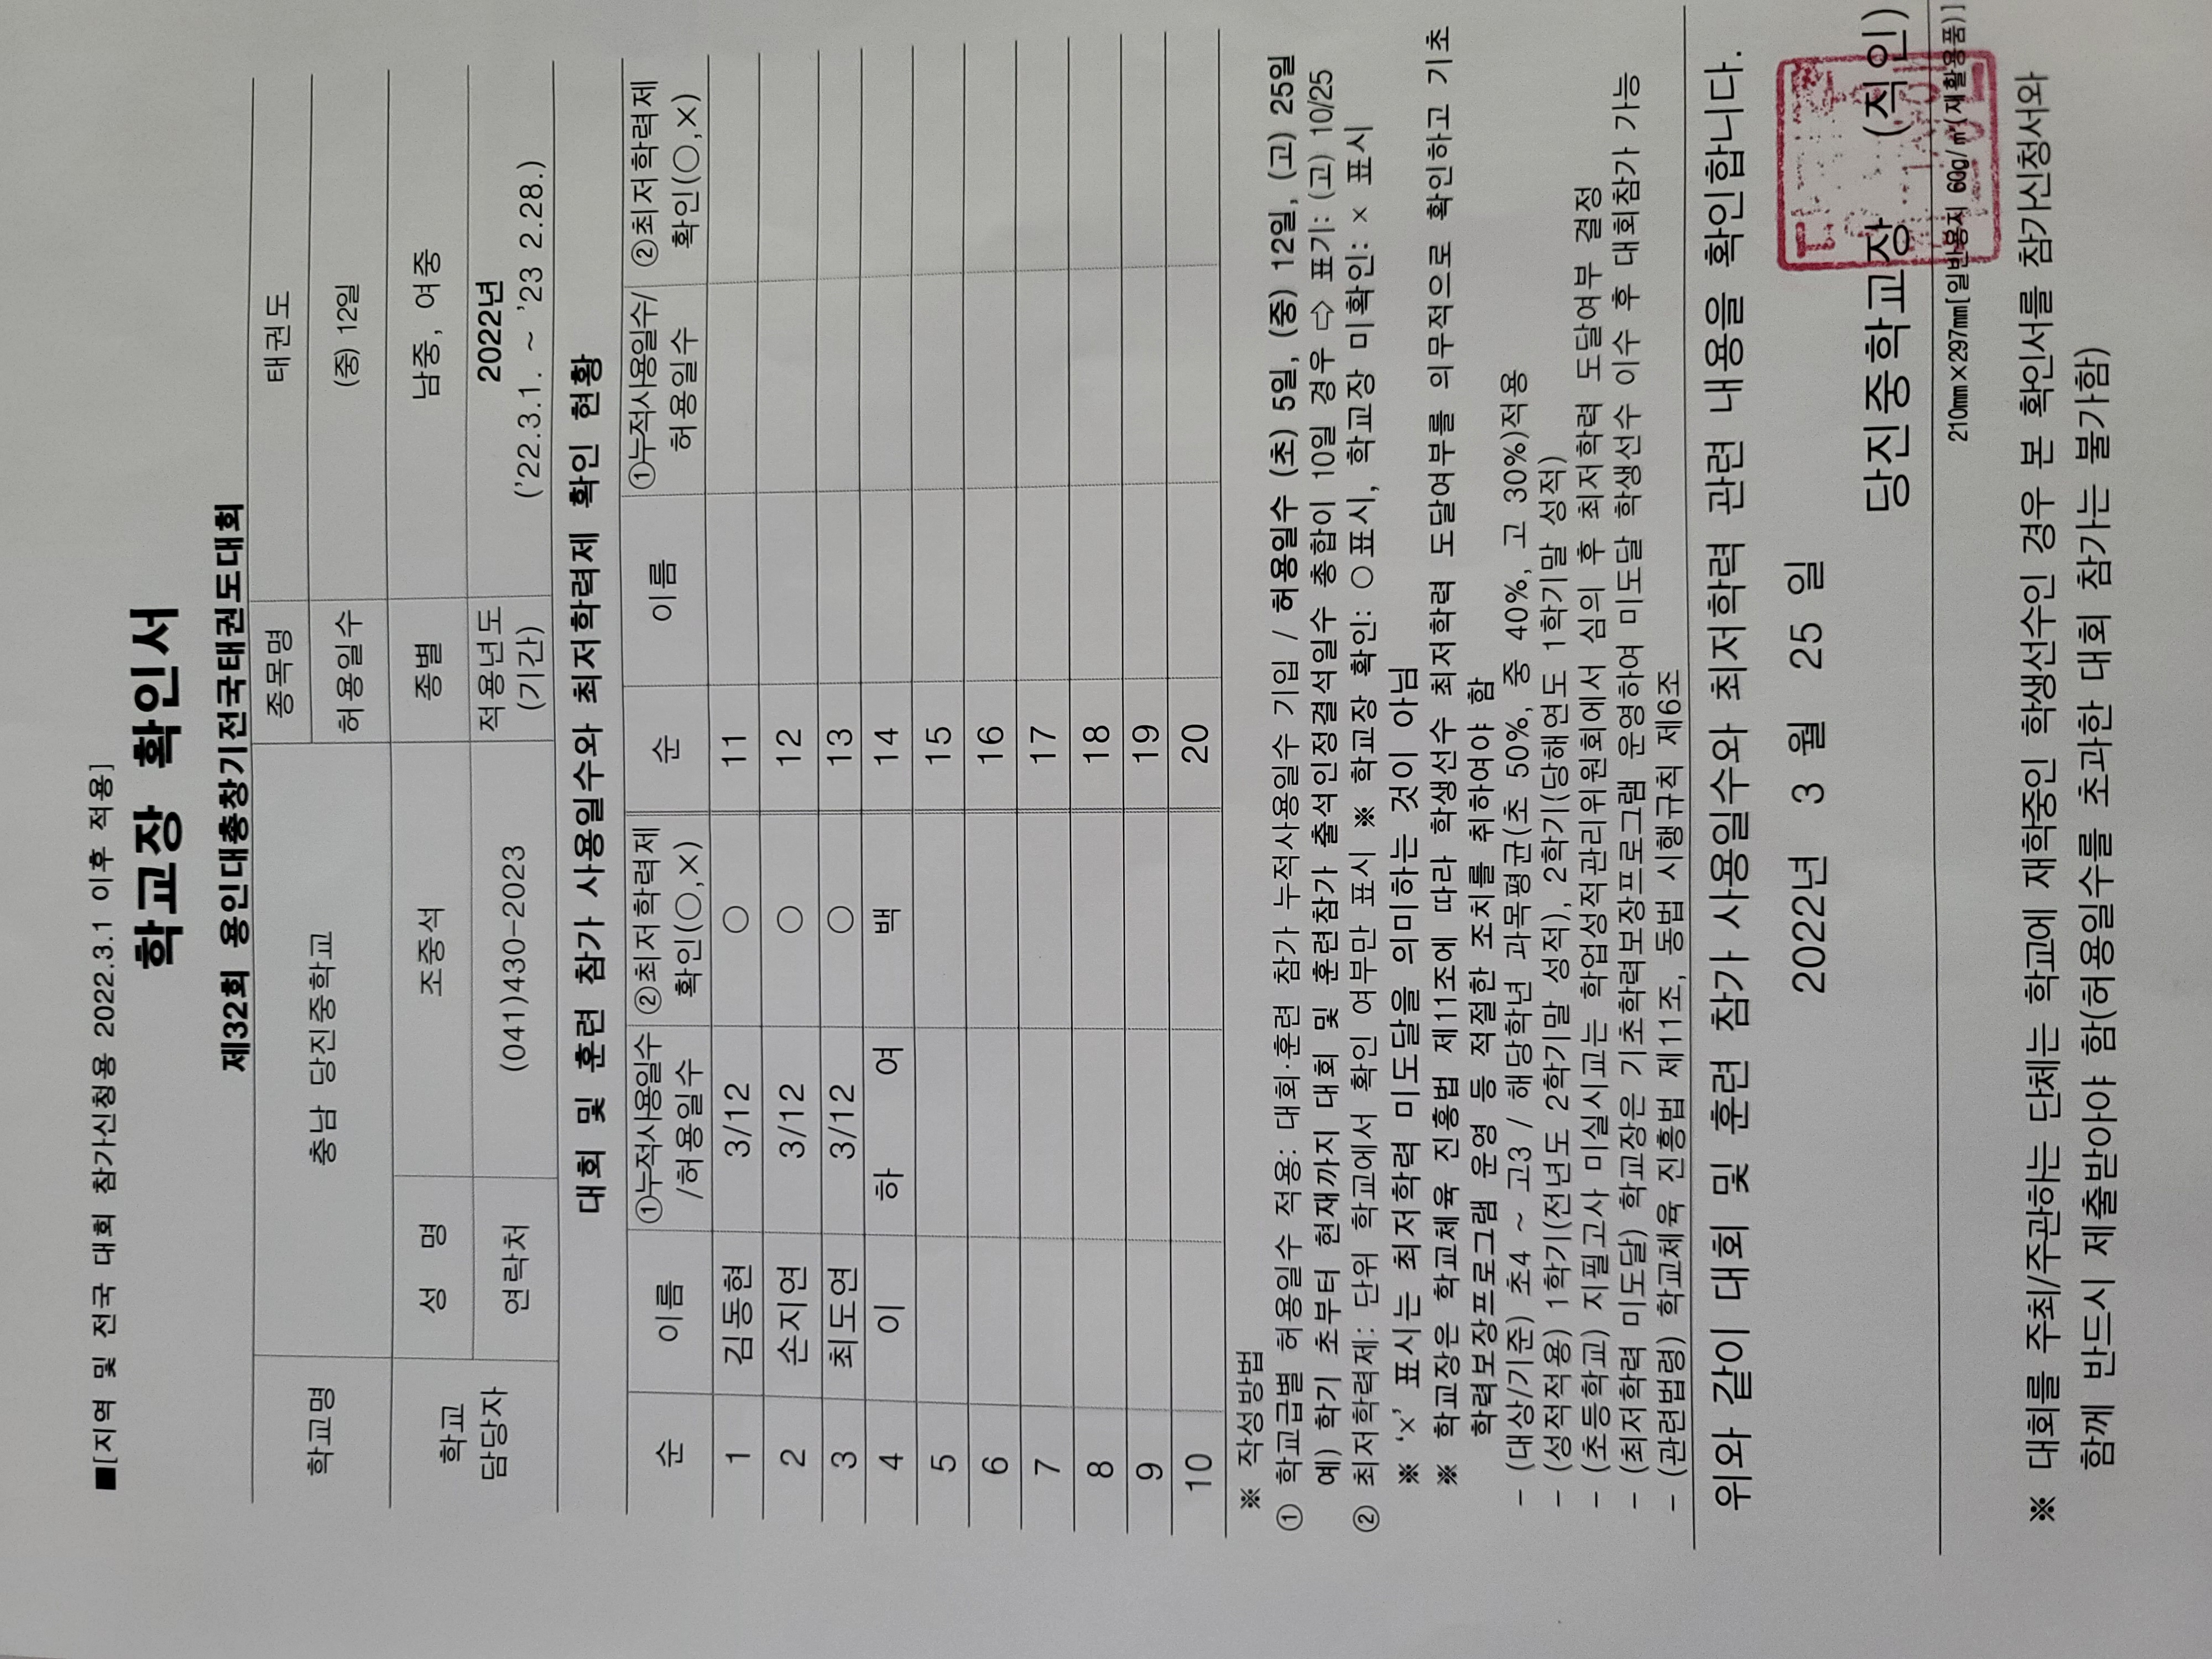 ■[지역 및 전국 대회 참가신청용 2022.3.1 이후 적용]
학교장 확인서
제32회 용인대총장기전국태권도대회
학교명 충남 당진중학교 종목명 태권도
허용일수 (중) 12일
학교 담당자 성 명 조중석 종별 남중, 여중
연락처 (041)430-2023 적용년도 (기간) 2022년
('22.3.1. ~ '23 2.28.)
대회 및 훈련 참가 사용일수와 최저학력제 확인 현황
순 이름 ①누적사용일수 /허용일수 ②최저학력제 확인(○,×) 순 이름 ①누적사용일수/ 허용일수 ②최저학력제 확인(○,×)
1 김동현 3/12 ○ 11
2 손지연 3/12 ○ 12
3 최도연 3/12 ○ 13
4 이 하 여 백 14
5 15
6 16
7 17
8 18
9 19
10 20
※ 작성방법
① 학교급별 허용일수 적용: 대회·훈련 참가 누적사용일수 기입 / 허용일수 (초) 5일, (중) 12일, (고) 25일
예) 학기 초부터 현재까지 대회 및 훈련참가 출석인정결석일수 총합이 10일 경우 ⇨ 표기: (고) 10/25
② 최저학력제: 단위 학교에서 확인 여부만 표시 ※ 학교장 확인: ○표시, 학교장 미확인: × 표시
※ '×' 표시는 최저학력 미도달을 의미하는 것이 아님
※ 학교장은 학교체육 진흥법 제11조에 따라 학생선수 최저학력 도달여부를 의무적으로 확인하고 기초
학력보장프로그램 운영 등 적절한 조치를 취하여야 함
- (대상/기준) 초4 ~ 고3 / 해당학년 과목평균(초 50%, 중 40%, 고 30%)적용
- (성적적용) 1학기(전년도 2학기말 성적), 2학기(당해연도 1학기말 성적)
- (초등학교) 지필고사 미실시교는 학업성적관리위원회에서 심의 후 최저학력 도달여부 결정
- (최저학력 미도달) 학교장은 기초학력보장프로그램 운영하여 미도달 학생선수 이수 후 대회참가 가능
- (관련법령) 학교체육 진흥법 제11조, 동법 시행규칙 제6조
위와 같이 대회 및 훈련 참가 사용일수와 최저학력 관련 내용을 확인합니다.
2022년 3 월 25 일
당진중학교장 (직인)
210mm×297mm[일반용지 60g/㎡(재활용품)]
※ 대회를 주최/주관하는 단체는 학교에 재학중인 학생선수인 경우 본 확인서를 참가신청서와
함께 반드시 제출받아야 함(허용일수를 초과한 대회 참가는 불가함)